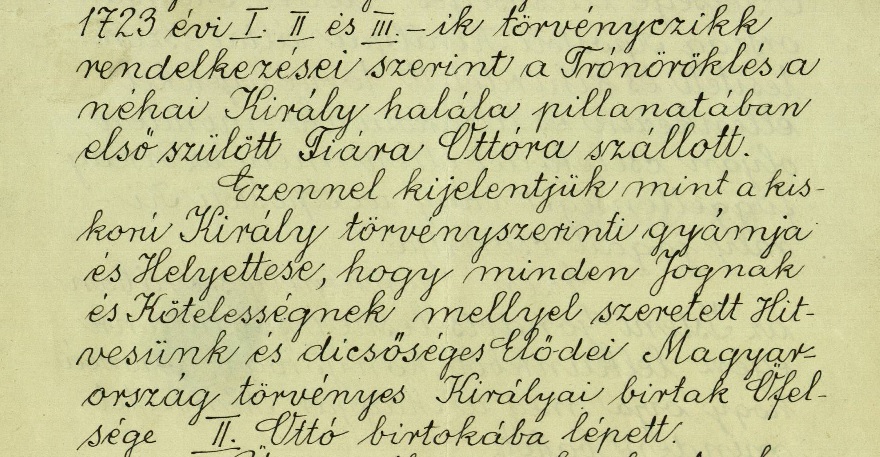 1723 évi I. II és III.-ik törvényczikk
rendelkezései szerint a Trónöröklés a
néhai Király halála pillanatában
első szülött Fiára Ottóra szállott.
Ezennel kijelentjük mint a kis-
korú Király törvényszerinti gyámja
és Helyettese, hogy minden Jognak
és Kötelességnek mellyel szeretett Hit-
vesünk és dicsőséges Elődei Magyar-
ország törvényes Királyai birtak Őfel-
sége II. Ottó birtokába lépett.